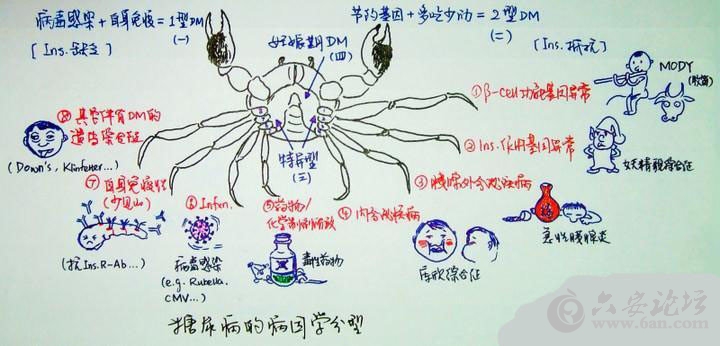 病毒感染 + 自身免疫 = 1型DM
(一)
[Ins.缺乏]
节约基因 + 多吃少动 = 2型DM
(二)
[Ins.抵抗]
妊娠期DM
(四)
特异型
(三)
① β-cell功能基因异常
MODY
② Ins.作用基因异常
妖精貌综合征
③ 胰腺外分泌疾病
急性胰腺炎
④ 内分泌疾病
库欣综合征
⑤ 药物/
化学制剂所致
毒性药物
⑥ Infen.
病毒感染
(e.g. Rubella.
CMV...)
⑦ 自身免疫性
(少见)
(抗Ins.R-Ab...)
⑧ 其它伴有DM的
遗传综合征
(Down's, Klinfelter...)
糖尿病的病因学分型
六安论坛
www.6an.com